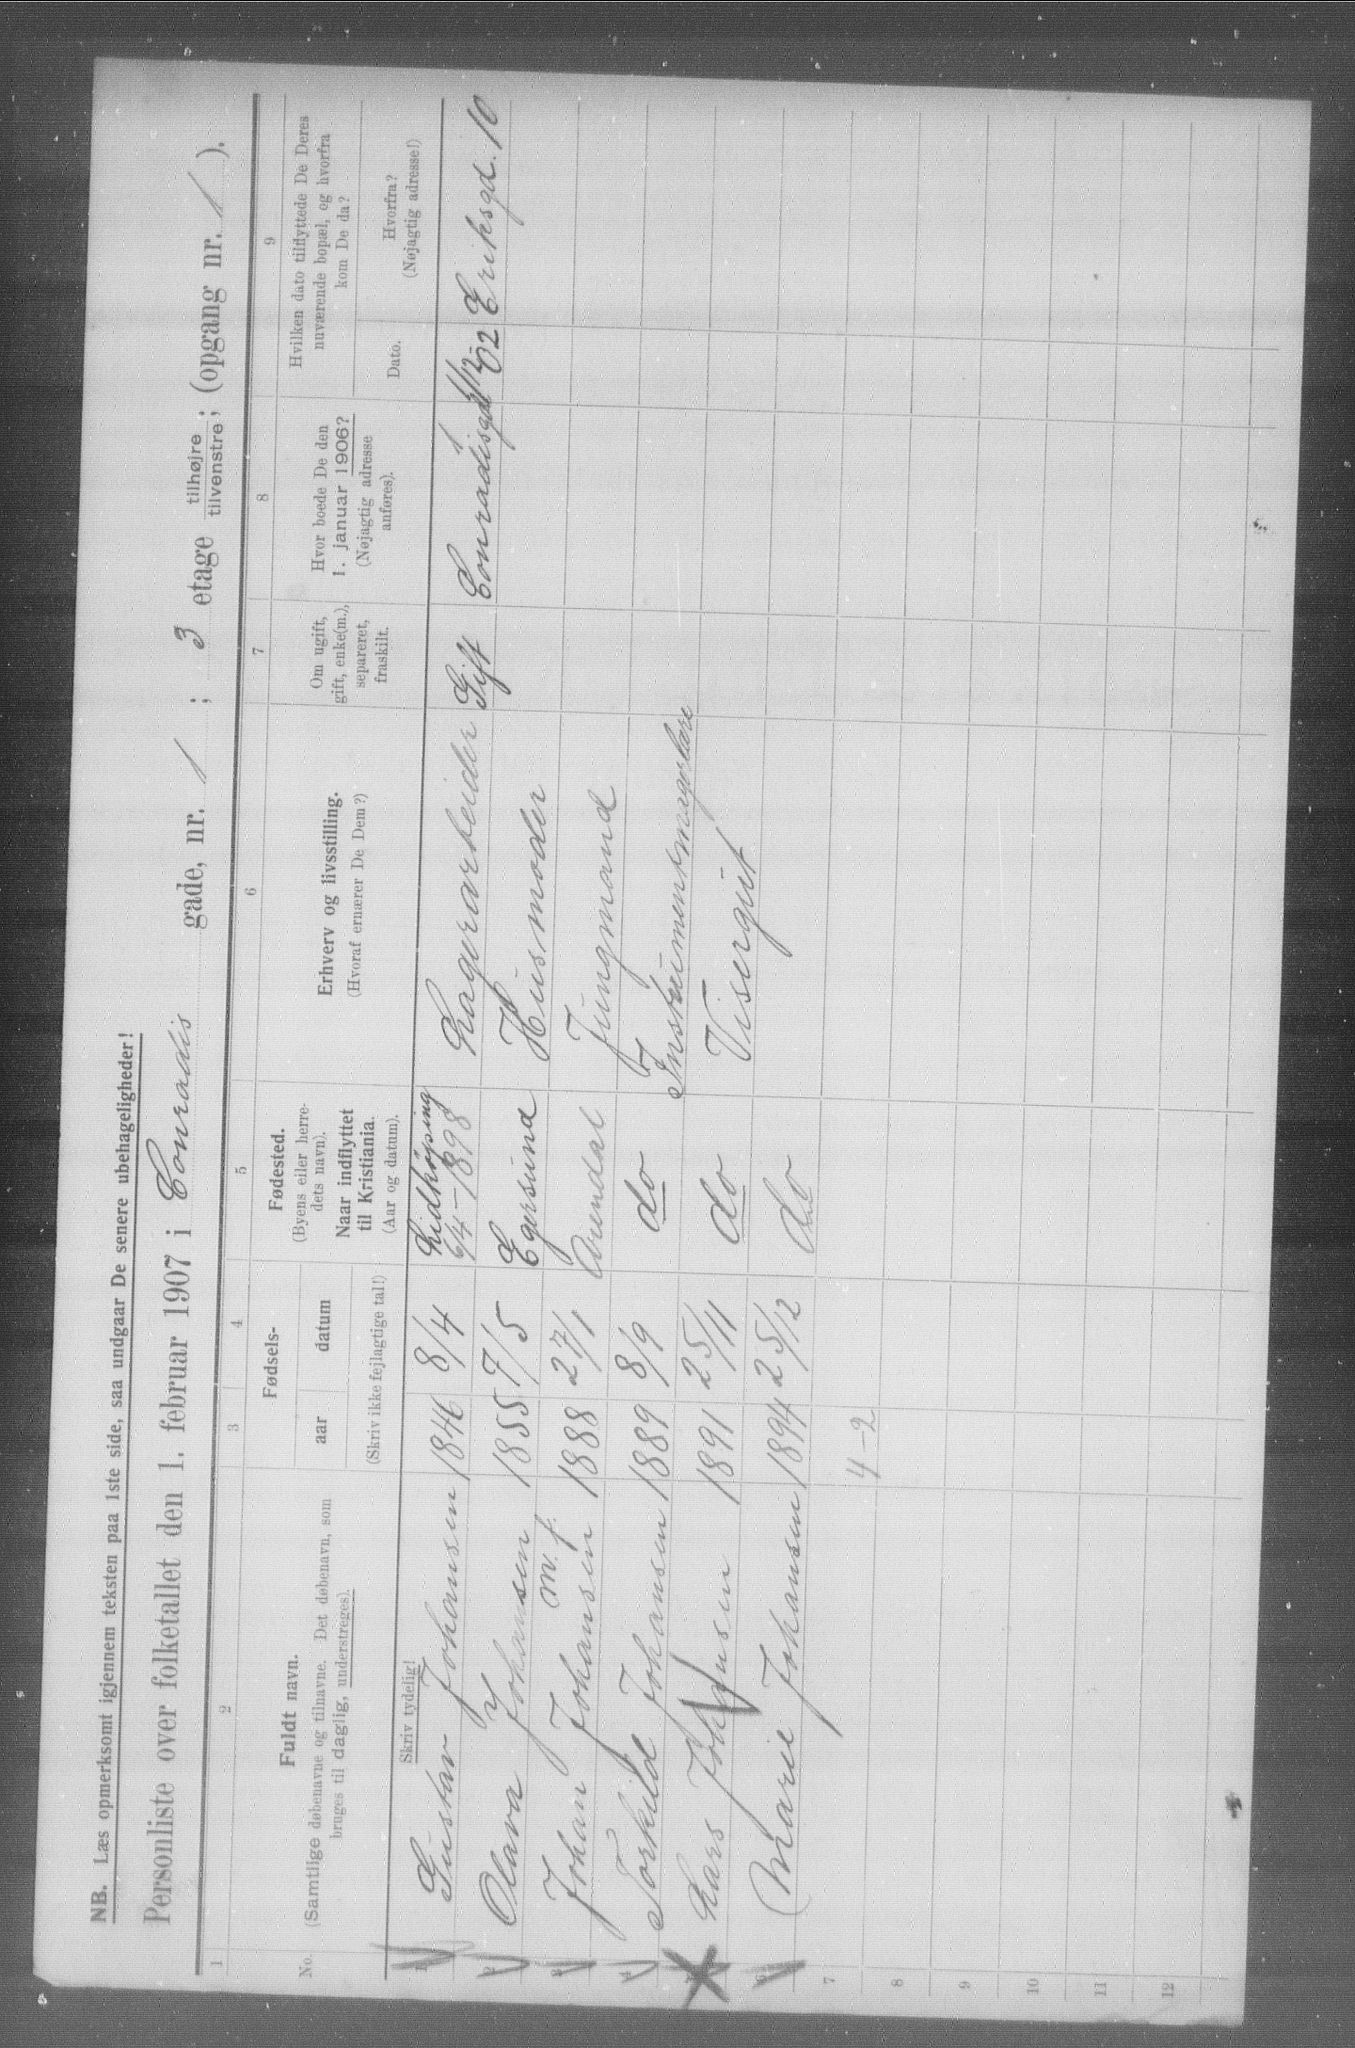 NB. Læs opmerksomt igjennem teksten paa 1ste side, saa undgaar De senere ubehageligheder!
Personliste over folketallet den 1. februar 1907 i Conradis gade, nr. 1 ; 3 etage tilhøjre tilvenstre ; (opgang nr. 1 ).
1 2 3 4 5 6 7 8 9
No. Fuldt navn. (Samtlige døbenavne og tilnavne. Det døbenavn, som bruges til daglig, understreges).
Fødsels-
aar datum
(Skriv ikke fejlagtige tal!)
Fødested. (Byens eller herredets navn). Naar indflyttet til Kristiania. (Aar og datum).
Erhverv og livsstilling. (Hvoraf ernærer De Dem?)
Om ugift, gift, enke(m.), separeret, fraskilt.
Hvor boede De den 1. januar 1906? (Nøjagtig adresse anføres).
Hvilken dato tilflyttede De Deres nuværende bopæl, og hvorfra kom De da?
Dato. Hvorfra? (Nøjagtig adresse!)
Skriv tydelig!
1 Gustav Johansen 1846 8/4 Lidköping 6/4-1898 Lagerarbeider Gift Conradisgd 1 1/12 02 Eriksgd. 10
2 Olava Johansen 1855 7/5 Egersund Husmoder
m. f.
3 Johan Johansen 1888 27/1 Arendal Jungmand
4 Torkild Johansen 1889 8/9 do Instrumentmagerlære
5 Lars Johansen 1891 25/11 do Visergut
6 Marie Johansen 1894 25/12 do
7 4-2
8
9
10
11
12